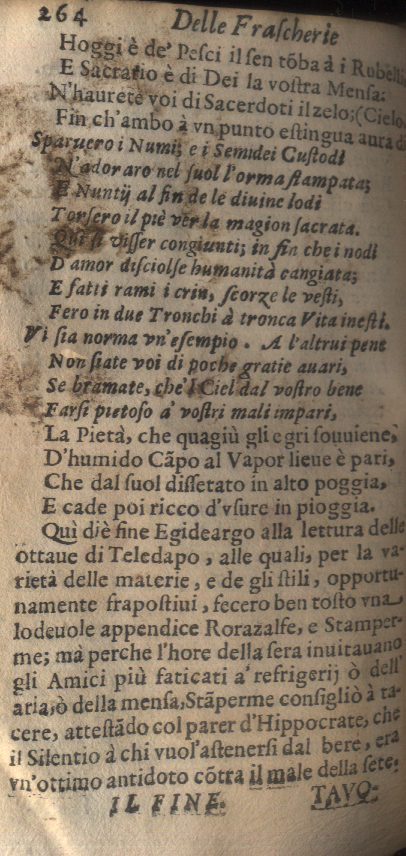 264 Delle Fraſcherie
Hoggi è de' Peſci il ſen tõba à i Rubelli,
E Sacrario è di Dei la voſtra Menſa:
N'haurete voi di Sacerdoti il zelo; (Cielo,
Fin ch'ambo à vn punto eſtingua aura di
Sparuero i Numi; e i Semidei Cuſtodi
N'adoraro nel ſuol l'orma ſtampata;
E Nuntij al fin de le diuine lodi
Torſero il piè ver la magion ſacrata.
Quì ſi viſſer congiunti; in fin che i nodi
D'amor diſciolſe humanità cangiata;
E fatti rami i crin, ſcorze le veſti,
Fero in due Tronchi à tronca Vita ineſti.
Vi ſia norma vn'eſempio. A l'altrui pene
Non ſiate voi di poche gratie auari,
Se bramate, che'l Ciel dal voſtro bene
Farſi pietoſo a' voſtri mali impari,
La Pietà, che quagiù gli egri ſouuiene,
D'humido Cãpo al Vapor lieue è pari,
Che dal ſuol diſſetato in alto poggia,
E cade poi ricco d'vſure in pioggia.
Quì diè fine Egideargo alla lettura delle
ottaue di Teledapo, alle quali, per la va-
rietà delle materie, e de gli ſtili, opportu-
namente frapoſtiui, fecero ben toſto vna
lodeuole appendice Rorazalfe, e Stamper-
me; mà perche l'hore della ſera inuitauano
gli Amici più faticati a' refrigerij ò dell'
aria, ò della menſa, Stãperme conſigliò à ta-
cere, atteſtãdo col parer d'Hippocrate, che
il Silentio à chi vuol'aſtenerſi dal bere, era
vn'ottimo antidoto cõtra il male della ſete.
IL FINE. TAVO-